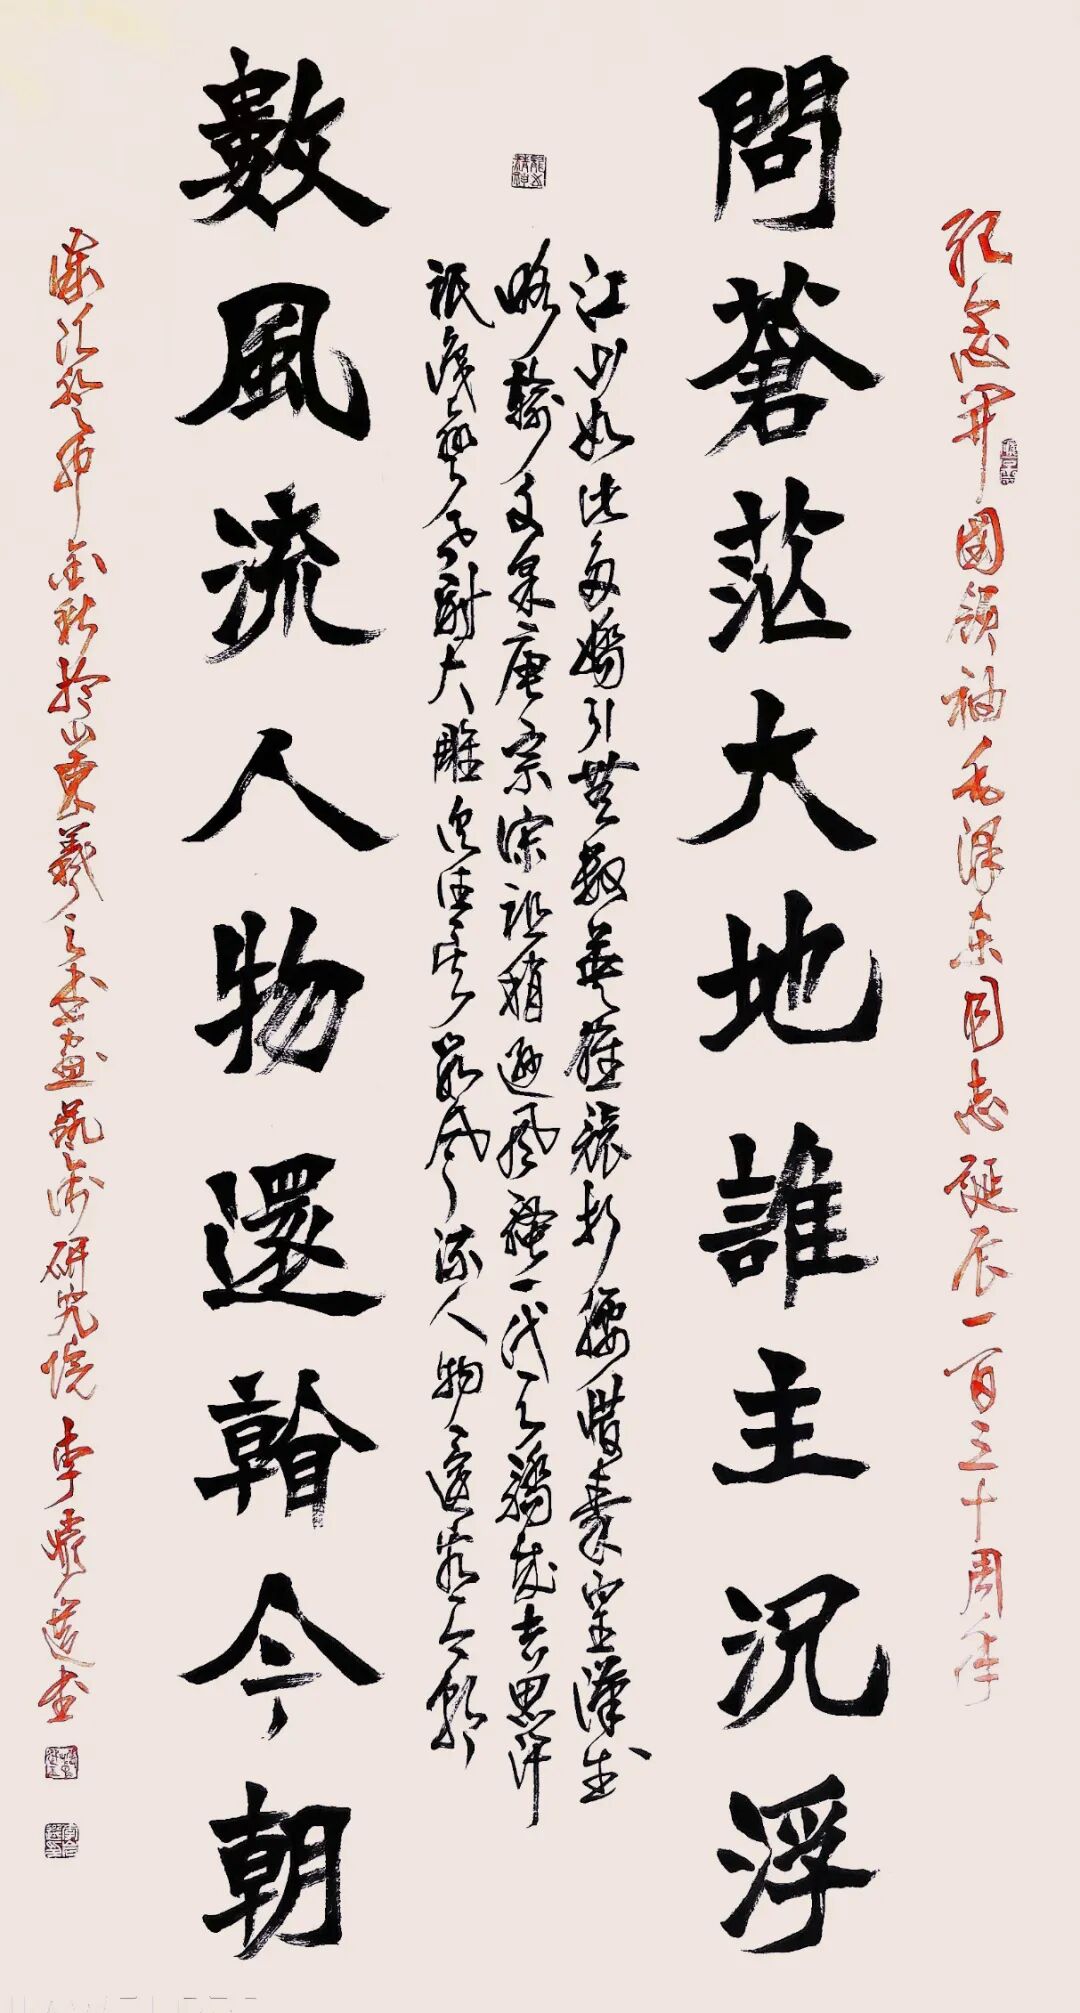 紀念開國領袖毛澤東同志誕辰一百三十周年
問蒼茫大地誰主沉浮
江山如此多嬌引無數英雄競折腰惜秦皇漢武
略輸文采唐宗宋祖稍遜風騷一代天驕成吉思汗
祇識彎弓射大雕俱往矣數風流人物還看今朝
數風流人物還看今朝
歲次癸卯金秋於山東羲之書畫藝術研究院李